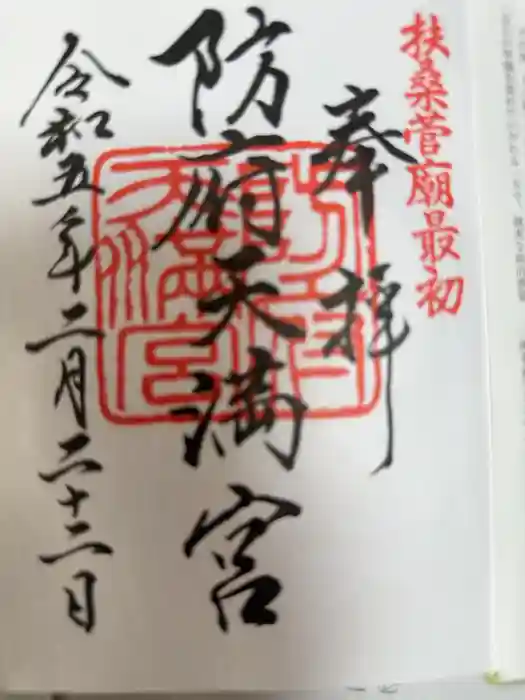 扶桑菅廟最初
奉拝
防府天満宮
令和五年二月二十二日